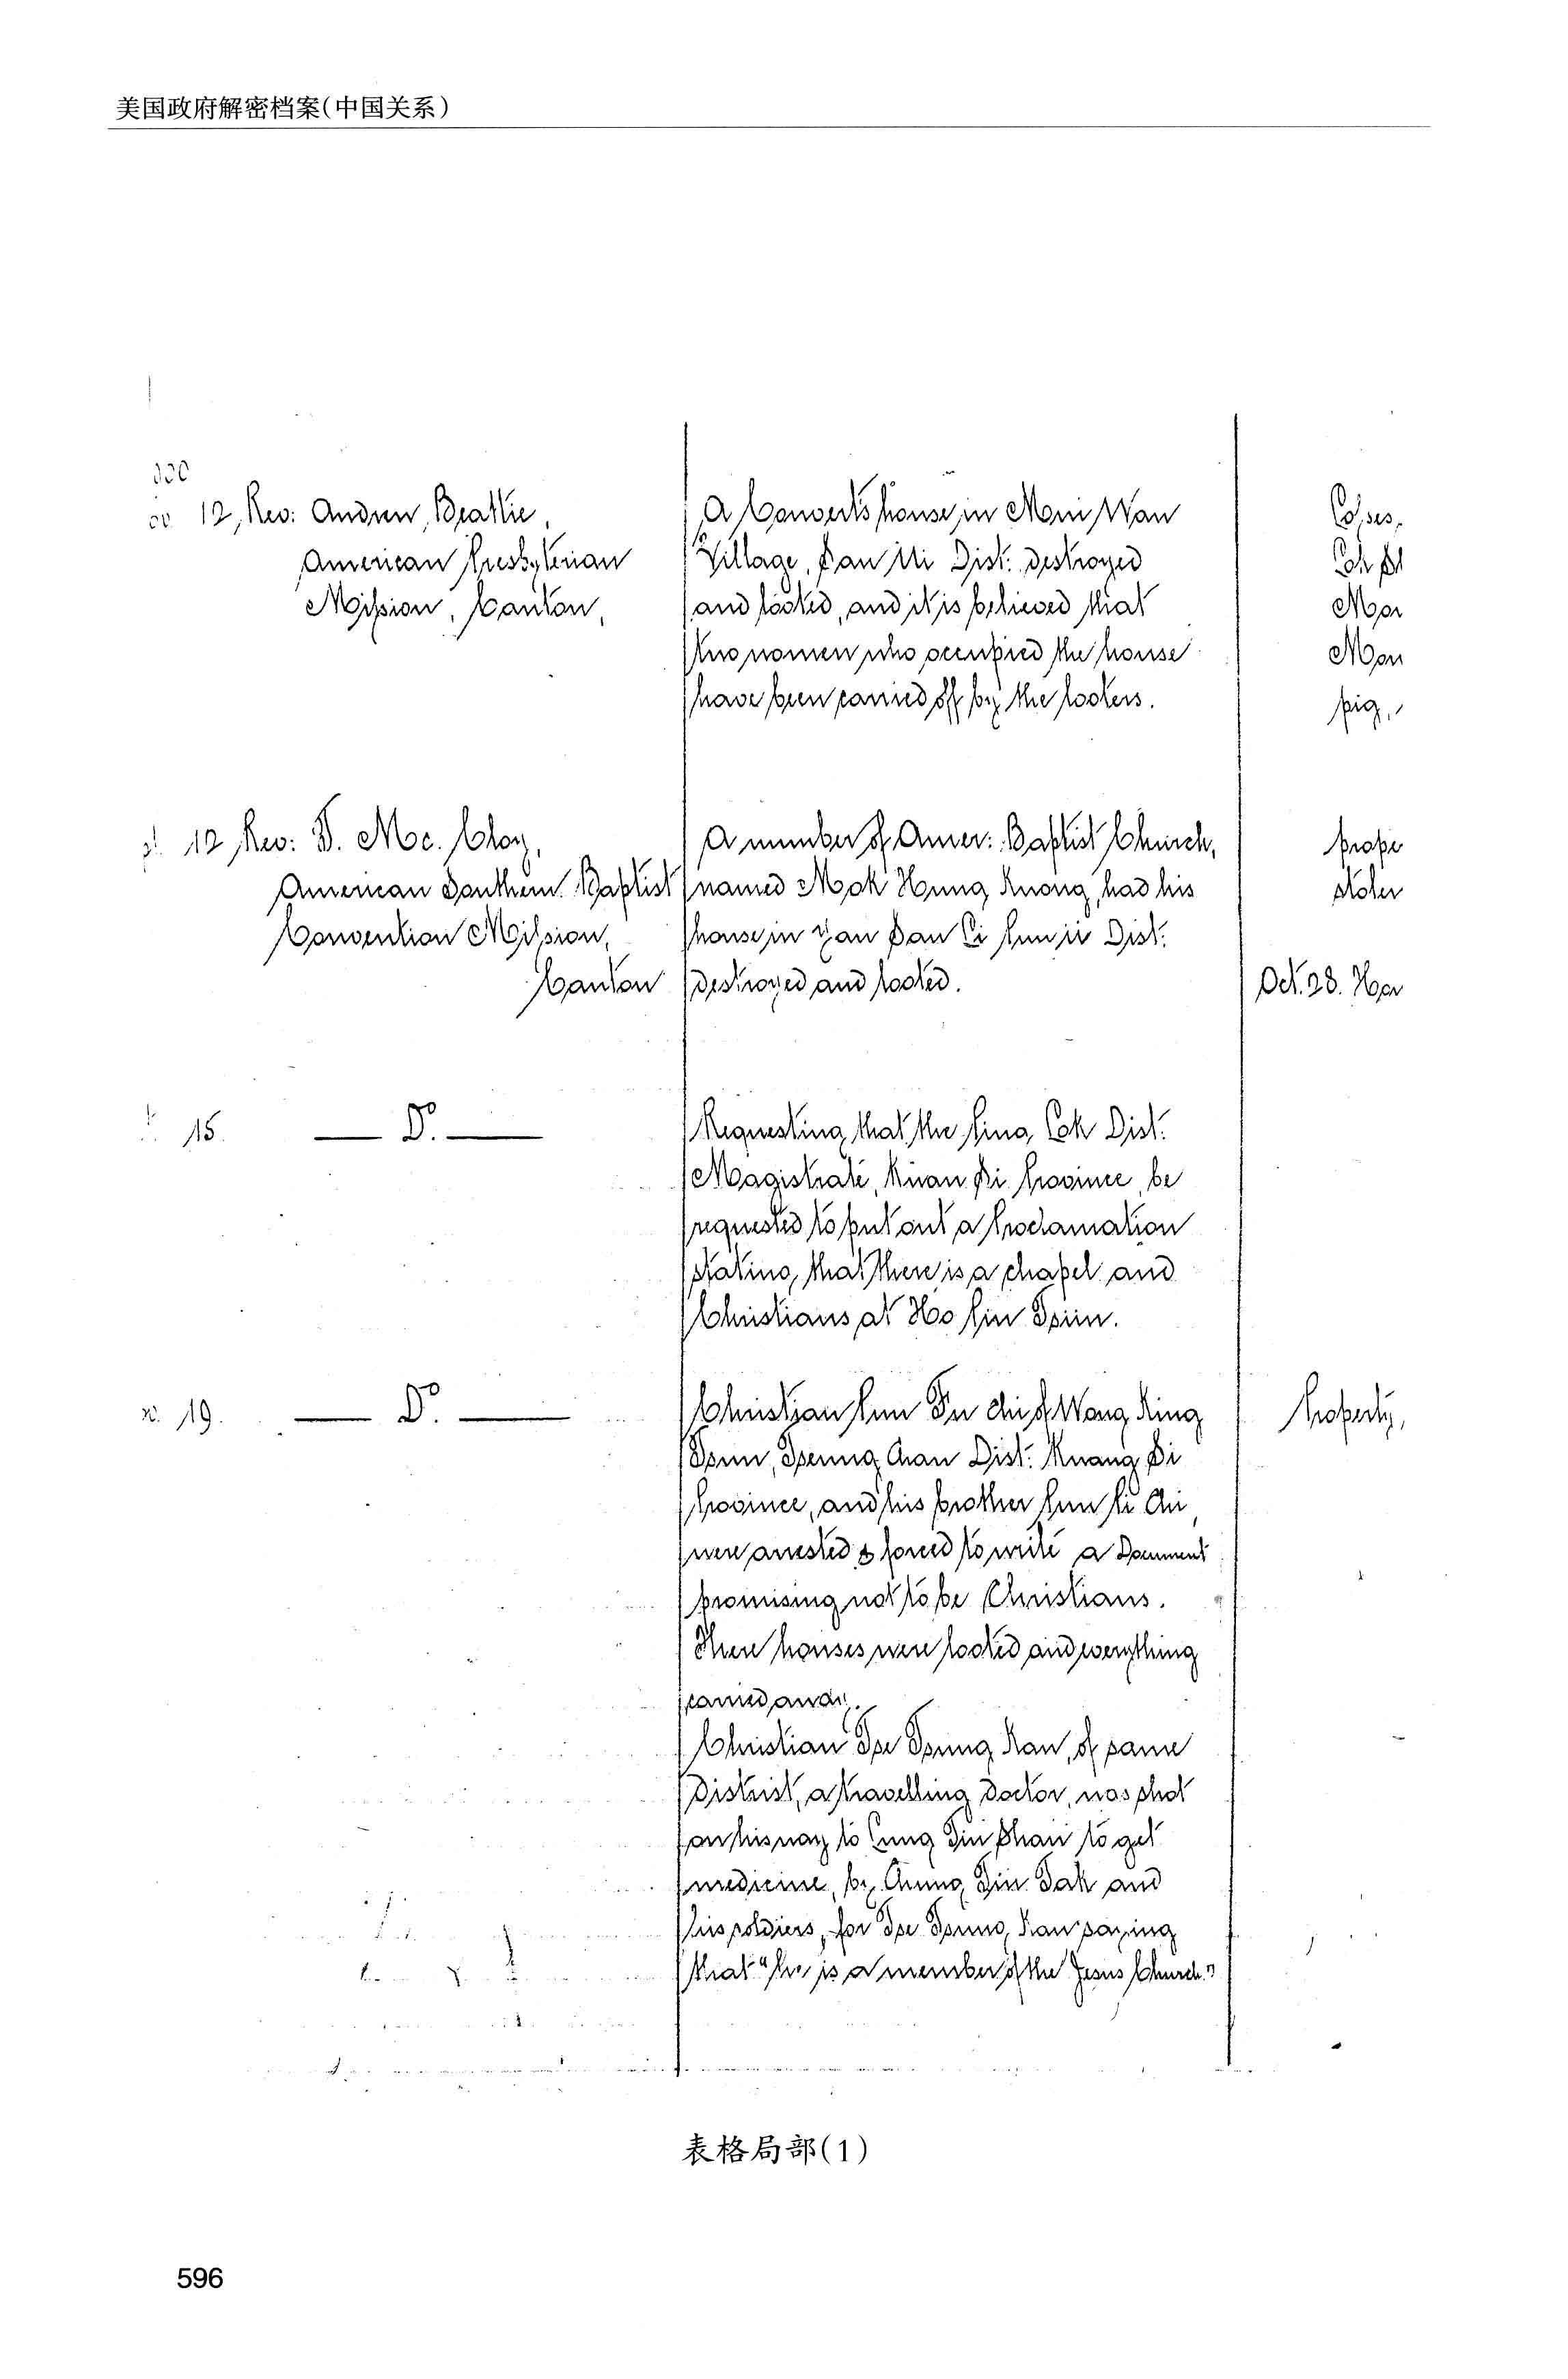 美国政府解密档案(中国关系)
12, Rev: Andrew Beattie,
American Presbyterian
Mission, Canton,
A Convert's house, in Mui Wan
Village, San Ui Dist: destroyed
and looted, and it is believed that
two women who occupied the house
have been carried off by the looters.
Mon
pig,
12 Rev: T. Mc. Cloy,
American Southern Baptist
Convention Mission,
Canton
A member of Amer: Baptist Church,
named Mok Hung Kuong, had his
house in Dist:
destroyed and looted.
Oct. 28.
15. — Do. —
Requesting, that the Dist:
Magistrate, Province, be
requested to put out a Proclamation
stating, that there is a chapel and
Christians at Ho
19. — Do. —
Christian of Wang King
Dist: Kuang Si
Province, and his brother
were arrested & forced to write a Document
promising not to be Christians.
houses were looted and everything
carried away.
Christian Tse Tsung Kau, of same
District, a travelling Doctor, was shot
on his way to to get
medicine, by and
his soldiers, for Tse Tsung Kau saying
that "he is a member of the Jesus Church."
Property,
表格局部(1)
596